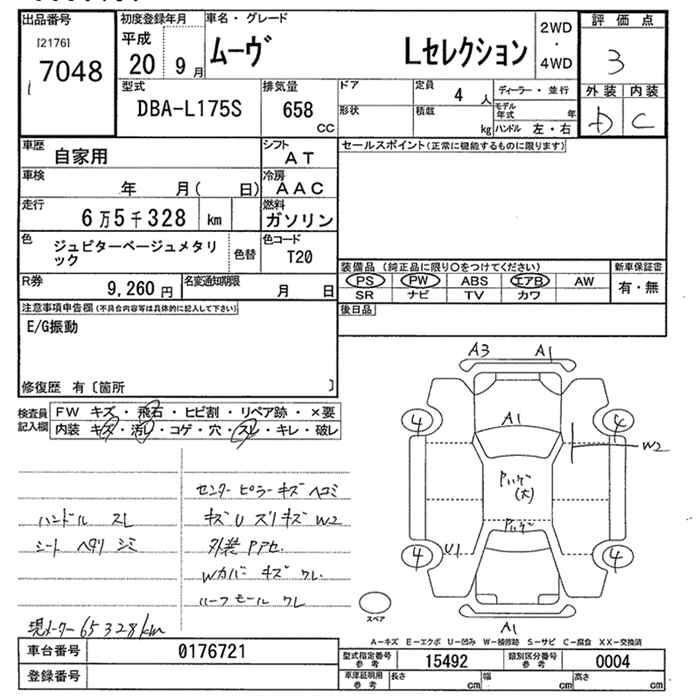 出品番号
[2176]
7048
初度登録年月
平成
20 9月
車名・グレード
ムーヴ Lセレクション
2WD
・
4WD
評価点
3
外装 内装
D C
型式
DBA-L175S
排気量
658
CC
ドア
形状
定員
4 人
積載
kg
ディーラー・並行
モデル年式 年
ハンドル 左・右
車歴
自家用
シフト
AT
車検
年 月( 日)
冷房
AAC
走行
6万5千328 km
燃料
ガソリン
色
ジュピターベージュメタリック
色替
色コード
T20
R券
9,260円
名変通知期限
月 日
セールスポイント(正常に機能するものに限ります)
装備品 (純正品に限り〇をつけてください)
PS PW ABS エアB AW
SR ナビ TV カワ
新車保証書
有・無
後日品
注意事項申告欄(不具合内容等は具体的に記入して下さい)
E/G振動
修復歴 有〔箇所 〕
検査員記入欄
FW キズ・飛石・ヒビ割・リペア跡・×要
内装 キズ・汚レ・コゲ・穴・スレ・キレ・破レ
ハンドル スレ
シート ヘタリ シミ
センターピラーキズ ヘコミ
キズU ズリキズ W2
外装Pアセ
Wカバーキズ ワレ
ハーフモール ワレ
現メーター 65328km
A3 A1
A1
4 4
W2
Pハゲ
(大)
Pハゲ
4 U1 4
A1
スペア
A-キズ E-エクボ U-凹み W-補修跡 S-サビ C-腐食 XX-交換済
車台番号
0176721
登録番号
型式指定番号
参考
15492
類別区分番号
参考
0004
車庫証明用
参考
長さ cm 幅 cm 高さ cm